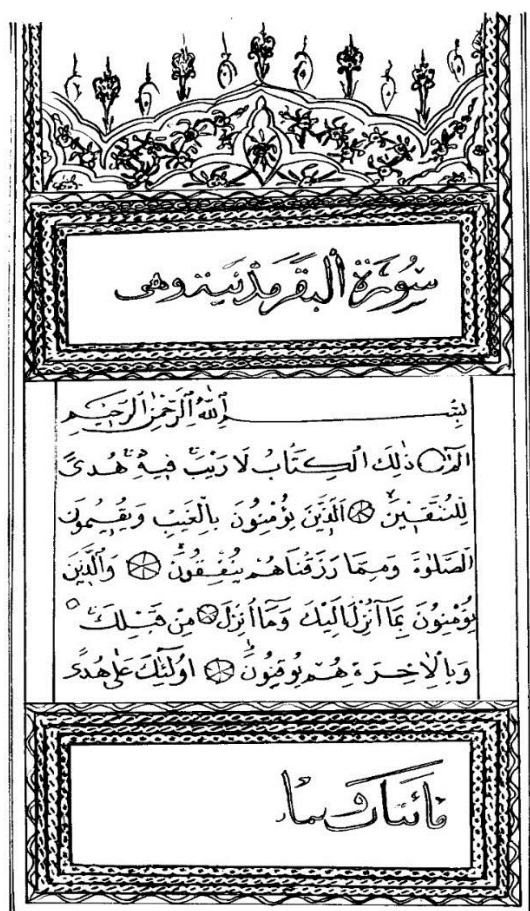 سُورَةُ البقَرَ مَدَنِيَة وهى
بِسْــــمِ اللهِ الرَّحْمٰنِ الرَّحِيْمِ
الٓمّٓ ۝ ذٰلِكَ الْكِتَابُ لَا رَيْبَ فِيْهِ هُدىً
لِلْمُتَّقِيْنَ ۝ الَّذِيْنَ يُؤْمِنُونَ بِالْغَيْبِ وَيُقِيْمُونَ
الصَّلٰوةَ وَمِمَّا رَزَقْنَاهُمْ يُنْفِقُونَ ۝ وَالَّذِيْنَ
يُؤْمِنُونَ بِمَا اُنْزِلَ اِلَيْكَ وَمَا اُنْزِلَ ۝ مِنْ قَبْلِكَ
وَبِالْاٰخِرَةِ هُمْ يُوقِنُونَ ۝ اُولٰئِكَ عَلٰى هُدىً
مائتان و